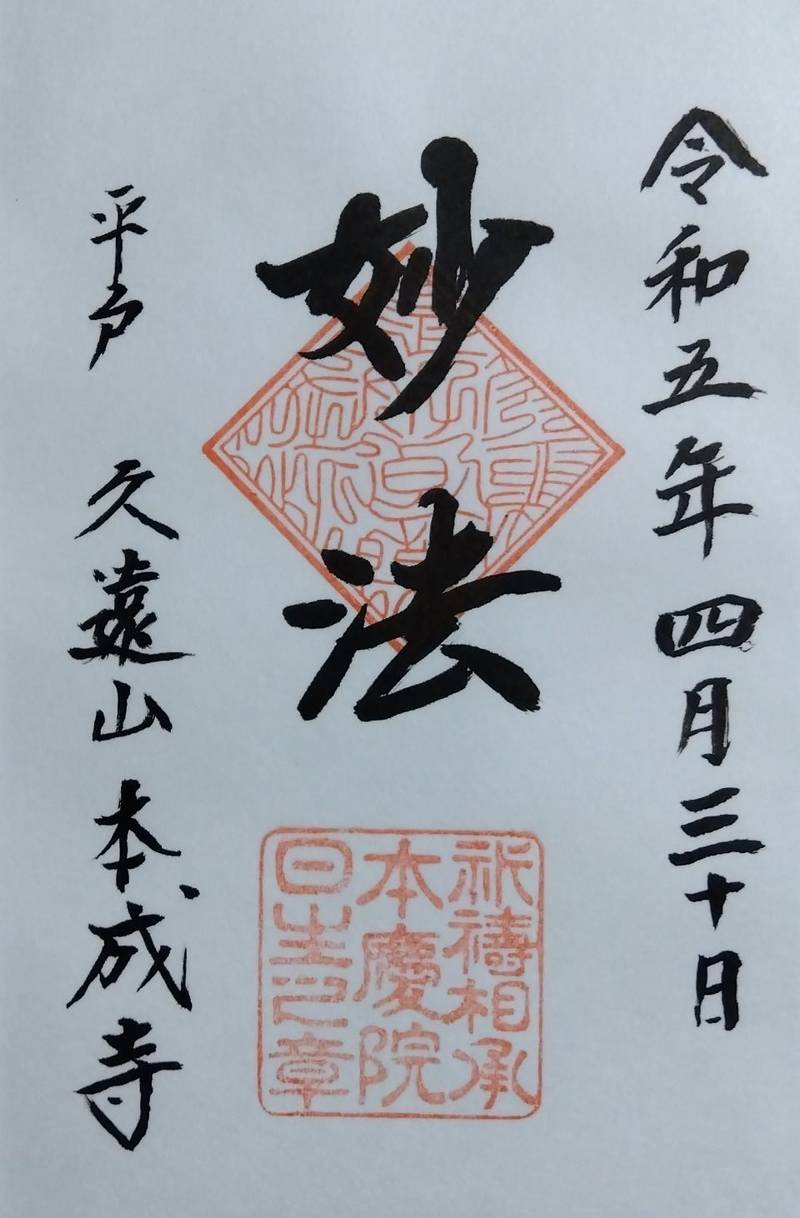 令和五年四月三十日
妙法
祈禱相承
本慶院
日生之章
平戸 久遠山本成寺